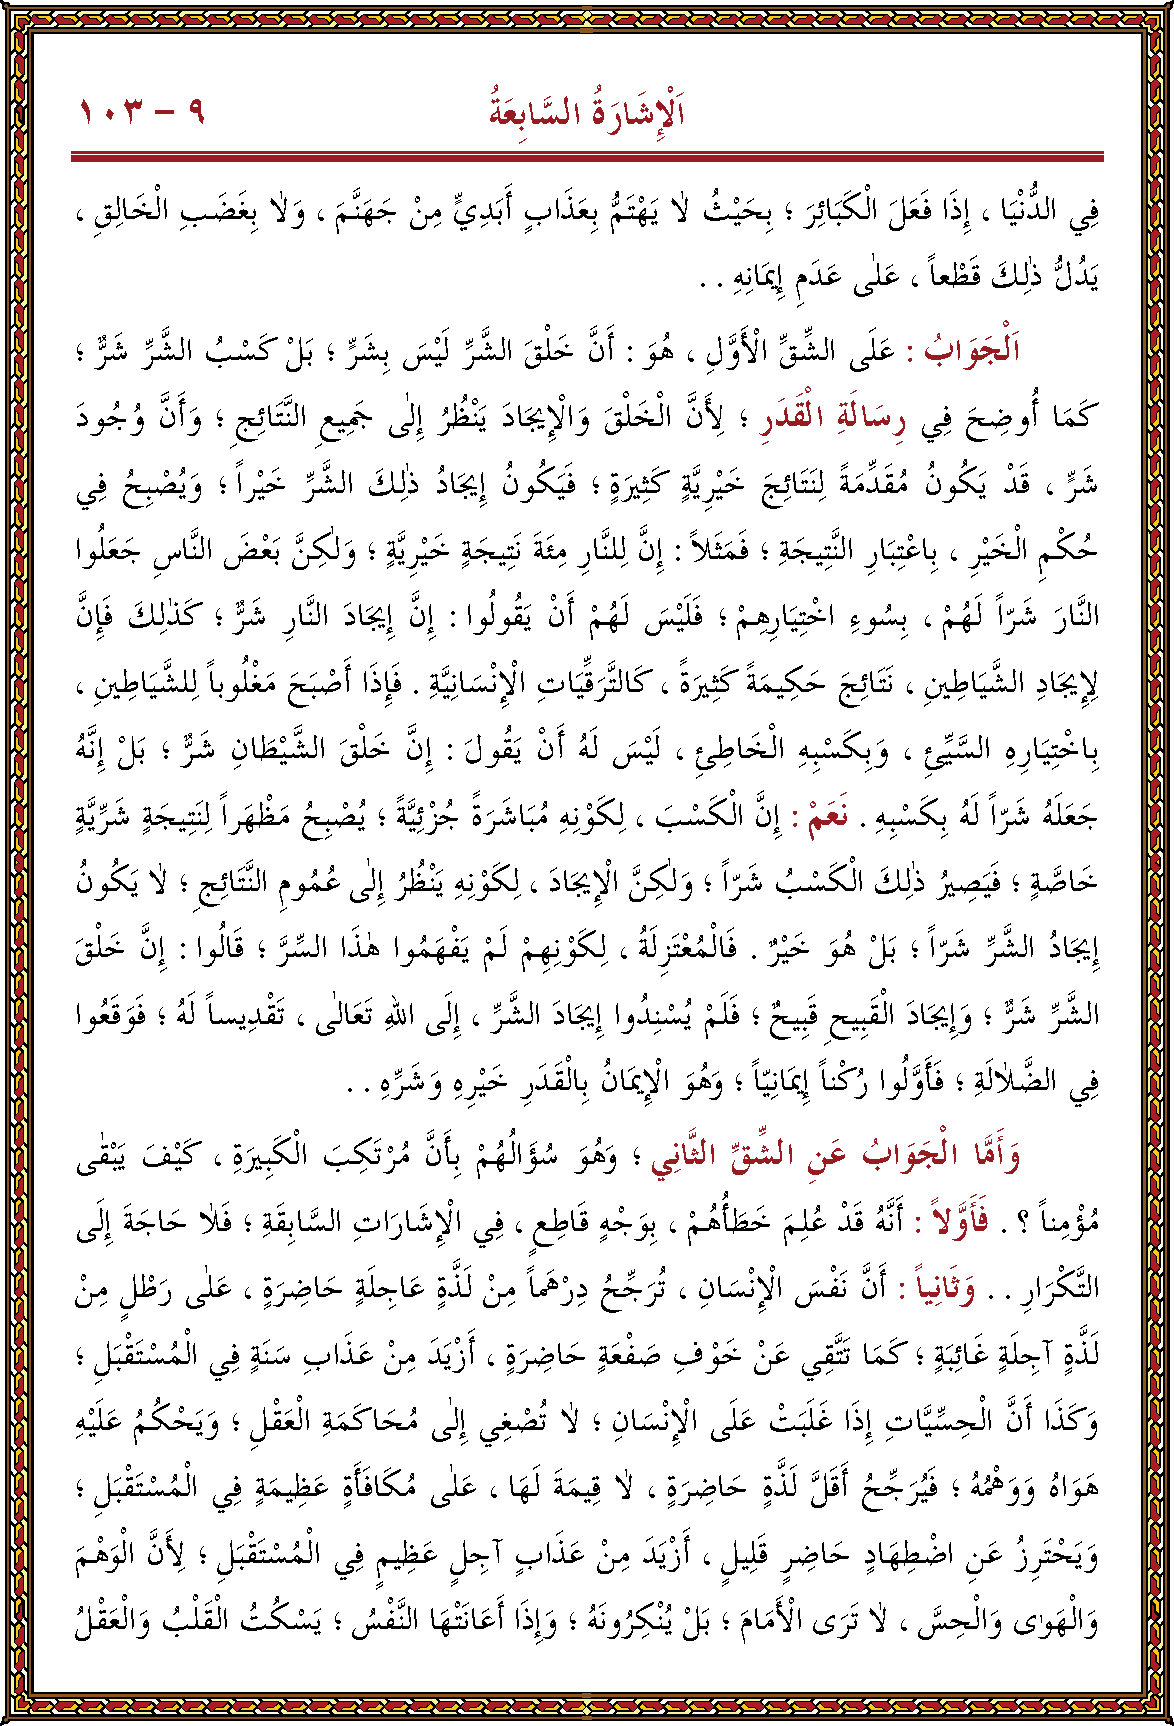 اَلْإِشَارَةُ السَّابِعَةُ ٩ – ١٠٣
فِي الدُّنْيَا ، إِذَا فَعَلَ الْكَبَائِرَ ؛ بِحَيْثُ لاَ يَهْتَمُّ بِعَذَابٍ أَبَدِيٍّ مِنْ جَهَنَّمَ ، وَلاَ بِغَضَبِ الْخَالِقِ ،
يَدُلُّ ذٰلِكَ قَطْعاً ، عَلٰى عَدَمِ إِيمَانِهِ . .
اَلْجَوَابُ : عَلَى الشِّقِّ الْأَوَّلِ ، هُوَ : أَنَّ خَلْقَ الشَّرِّ لَيْسَ بِشَرٍّ ؛ بَلْ كَسْبُ الشَّرِّ شَرٌّ ؛
كَمَا أُوضِحَ فِي رِسَالَةِ الْقَدَرِ ؛ لِأَنَّ الْخَلْقَ وَالْإِيجَادَ يُنْظَرُ إِلٰى جَمِيعِ النَّتَائِجِ ؛ وَأَنَّ وُجُودَ
شَرٍّ ، قَدْ يَكُونُ مُقَدِّمَةً لِنَتَائِجَ خَيْرِيَّةٍ كَثِيرَةٍ ؛ فَيَكُونُ إِيجَادُ ذٰلِكَ الشَّرِّ خَيْراً ؛ وَيُصْبِحُ فِي
حُكْمِ الْخَيْرِ ، بِاعْتِبَارِ النَّتِيجَةِ ؛ فَمَثَلاً : إِنَّ لِلنَّارِ مِئَةَ نَتِيجَةٍ خَيْرِيَّةٍ ؛ وَلٰكِنَّ بَعْضَ النَّاسِ جَعَلُوا
النَّارَ شَرّاً لَهُمْ ، بِسُوءِ اخْتِيَارِهِمْ ؛ فَلَيْسَ لَهُمْ أَنْ يَقُولُوا : إِنَّ إِيجَادَ النَّارِ شَرٌّ ؛ كَذٰلِكَ فَإِنَّ
لِإِيجَادِ الشَّيَاطِينِ ، نَتَائِجَ حَكِيمَةً كَثِيرَةً ، كَالتَّرَقِّيَاتِ الْإِنْسَانِيَّةِ . فَإِذَا أَصْبَحَ مَغْلُوباً لِلشَّيَاطِينِ ،
بِاخْتِيَارِهِ السَّيِّئِ ، وَبِكَسْبِهِ الْخَاطِئِ ، لَيْسَ لَهُ أَنْ يُقُولَ : إِنَّ خَلْقَ الشَّيْطَانِ شَرٌّ ؛ بَلْ إِنَّهُ
جَعَلَهُ شَرّاً لَهُ بِكَسْبِهِ . نَعَمْ : إِنَّ الْكَسْبَ ، لِكَوْنِهِ مُبَاشَرَةً جُزْئِيَّةً ؛ يُصْبِحُ مَظْهَراً لِنَتِيجَةٍ شَرِّيَّةٍ
خَاصَّةٍ ؛ فَيَصِيرُ ذٰلِكَ الْكَسْبُ شَرّاً ؛ وَلٰكِنَّ الْإِيجَادَ ، لِكَوْنِهِ يُنْظَرُ إِلٰى عُمُومِ النَّتَائِجِ ؛ لاَ يَكُونُ
إِيجَادُ الشَّرِّ شَرّاً ؛ بَلْ هُوَ خَيْرٌ . فَالْمُعْتَزِلَةُ ، لِكَوْنِهِمْ لَمْ يَفْهَمُوا هٰذَا السِّرَّ ؛ قَالُوا : إِنَّ خَلْقَ
الشَّرِّ شَرٌّ ؛ وَإِيجَادَ الْقَبِيحِ قَبِيحٌ ؛ فَلَمْ يُسْنِدُوا إِيجَادَ الشَّرِّ ، إِلَى اللهِ تَعَالٰى ، تَقْدِيساً لَهُ ؛ فَوَقَعُوا
فِي الضَّلاَلَةِ ؛ فَأَوَّلُوا رُكْناً إِيمَانِيّاً ؛ وَهُوَ الْإِيمَانُ بِالْقَدَرِ خَيْرِهِ وَشَرِّهِ . .
وَأَمَّا الْجَوَابُ عَنِ الشِّقِّ الثَّانِي ؛ وَهُوَ سُؤَالُهُمْ بِأَنَّ مُرْتَكِبَ الْكَبِيرَةِ ، كَيْفَ يَبْقٰى
مُؤْمِناً ؟ . فَأَوَّلاً : أَنَّهُ قَدْ عُلِمَ خَطَأُهُمْ ، بِوَجْهٍ قَاطِعٍ ، فِي الْإِشَارَاتِ السَّابِقَةِ ؛ فَلاَ حَاجَةَ إِلَى
التَّكْرَارِ . . وَثَانِياً : أَنَّ نَفْسَ الْإِنْسَانِ ، تُرَجِّحُ دِرْهَماً مِنْ لَذَّةٍ عَاجِلَةٍ حَاضِرَةٍ ، عَلٰى رَطْلٍ مِنْ
لَذَّةٍ آجِلَةٍ غَائِبَةٍ ؛ كَمَا تَتَّقِي عَنْ خَوْفِ صَفْعَةٍ حَاضِرَةٍ ، أَزْيَدَ مِنْ عَذَابِ سَنَةٍ فِي الْمُسْتَقْبَلِ ؛
وَكَذَا أَنَّ الْحِسِّيَّاتِ إِذَا غَلَبَتْ عَلَى الْإِنْسَانِ ؛ لاَ تُصْغِي إِلٰى مُحَاكَمَةِ الْعَقْلِ ؛ وَيَحْكُمُ عَلَيْهِ
هَوَاهُ وَوَهْمُهُ ؛ فَيُرَجِّحُ أَقَلَّ لَذَّةٍ حَاضِرَةٍ ، لاَ قِيمَةَ لَهَا ، عَلٰى مُكَافَأَةٍ عَظِيمَةٍ فِي الْمُسْتَقْبَلِ ؛
وَيَحْتَرِزُ عَنِ اضْطِهَادٍ حَاضِرٍ قَلِيلٍ ، أَزْيَدَ مِنْ عَذَابٍ آجِلٍ عَظِيمٍ فِي الْمُسْتَقْبَلِ ؛ لِأَنَّ الْوَهْمَ
وَالْهَوٰى وَالْحِسَّ ، لاَ تَرَى الْأَمَامَ ؛ بَلْ يُنْكِرُونَهُ ؛ وَإِذَا أَعَانَتْهَا النَّفْسُ ؛ يَسْكُتُ الْقَلْبُ وَالْعَقْلُ